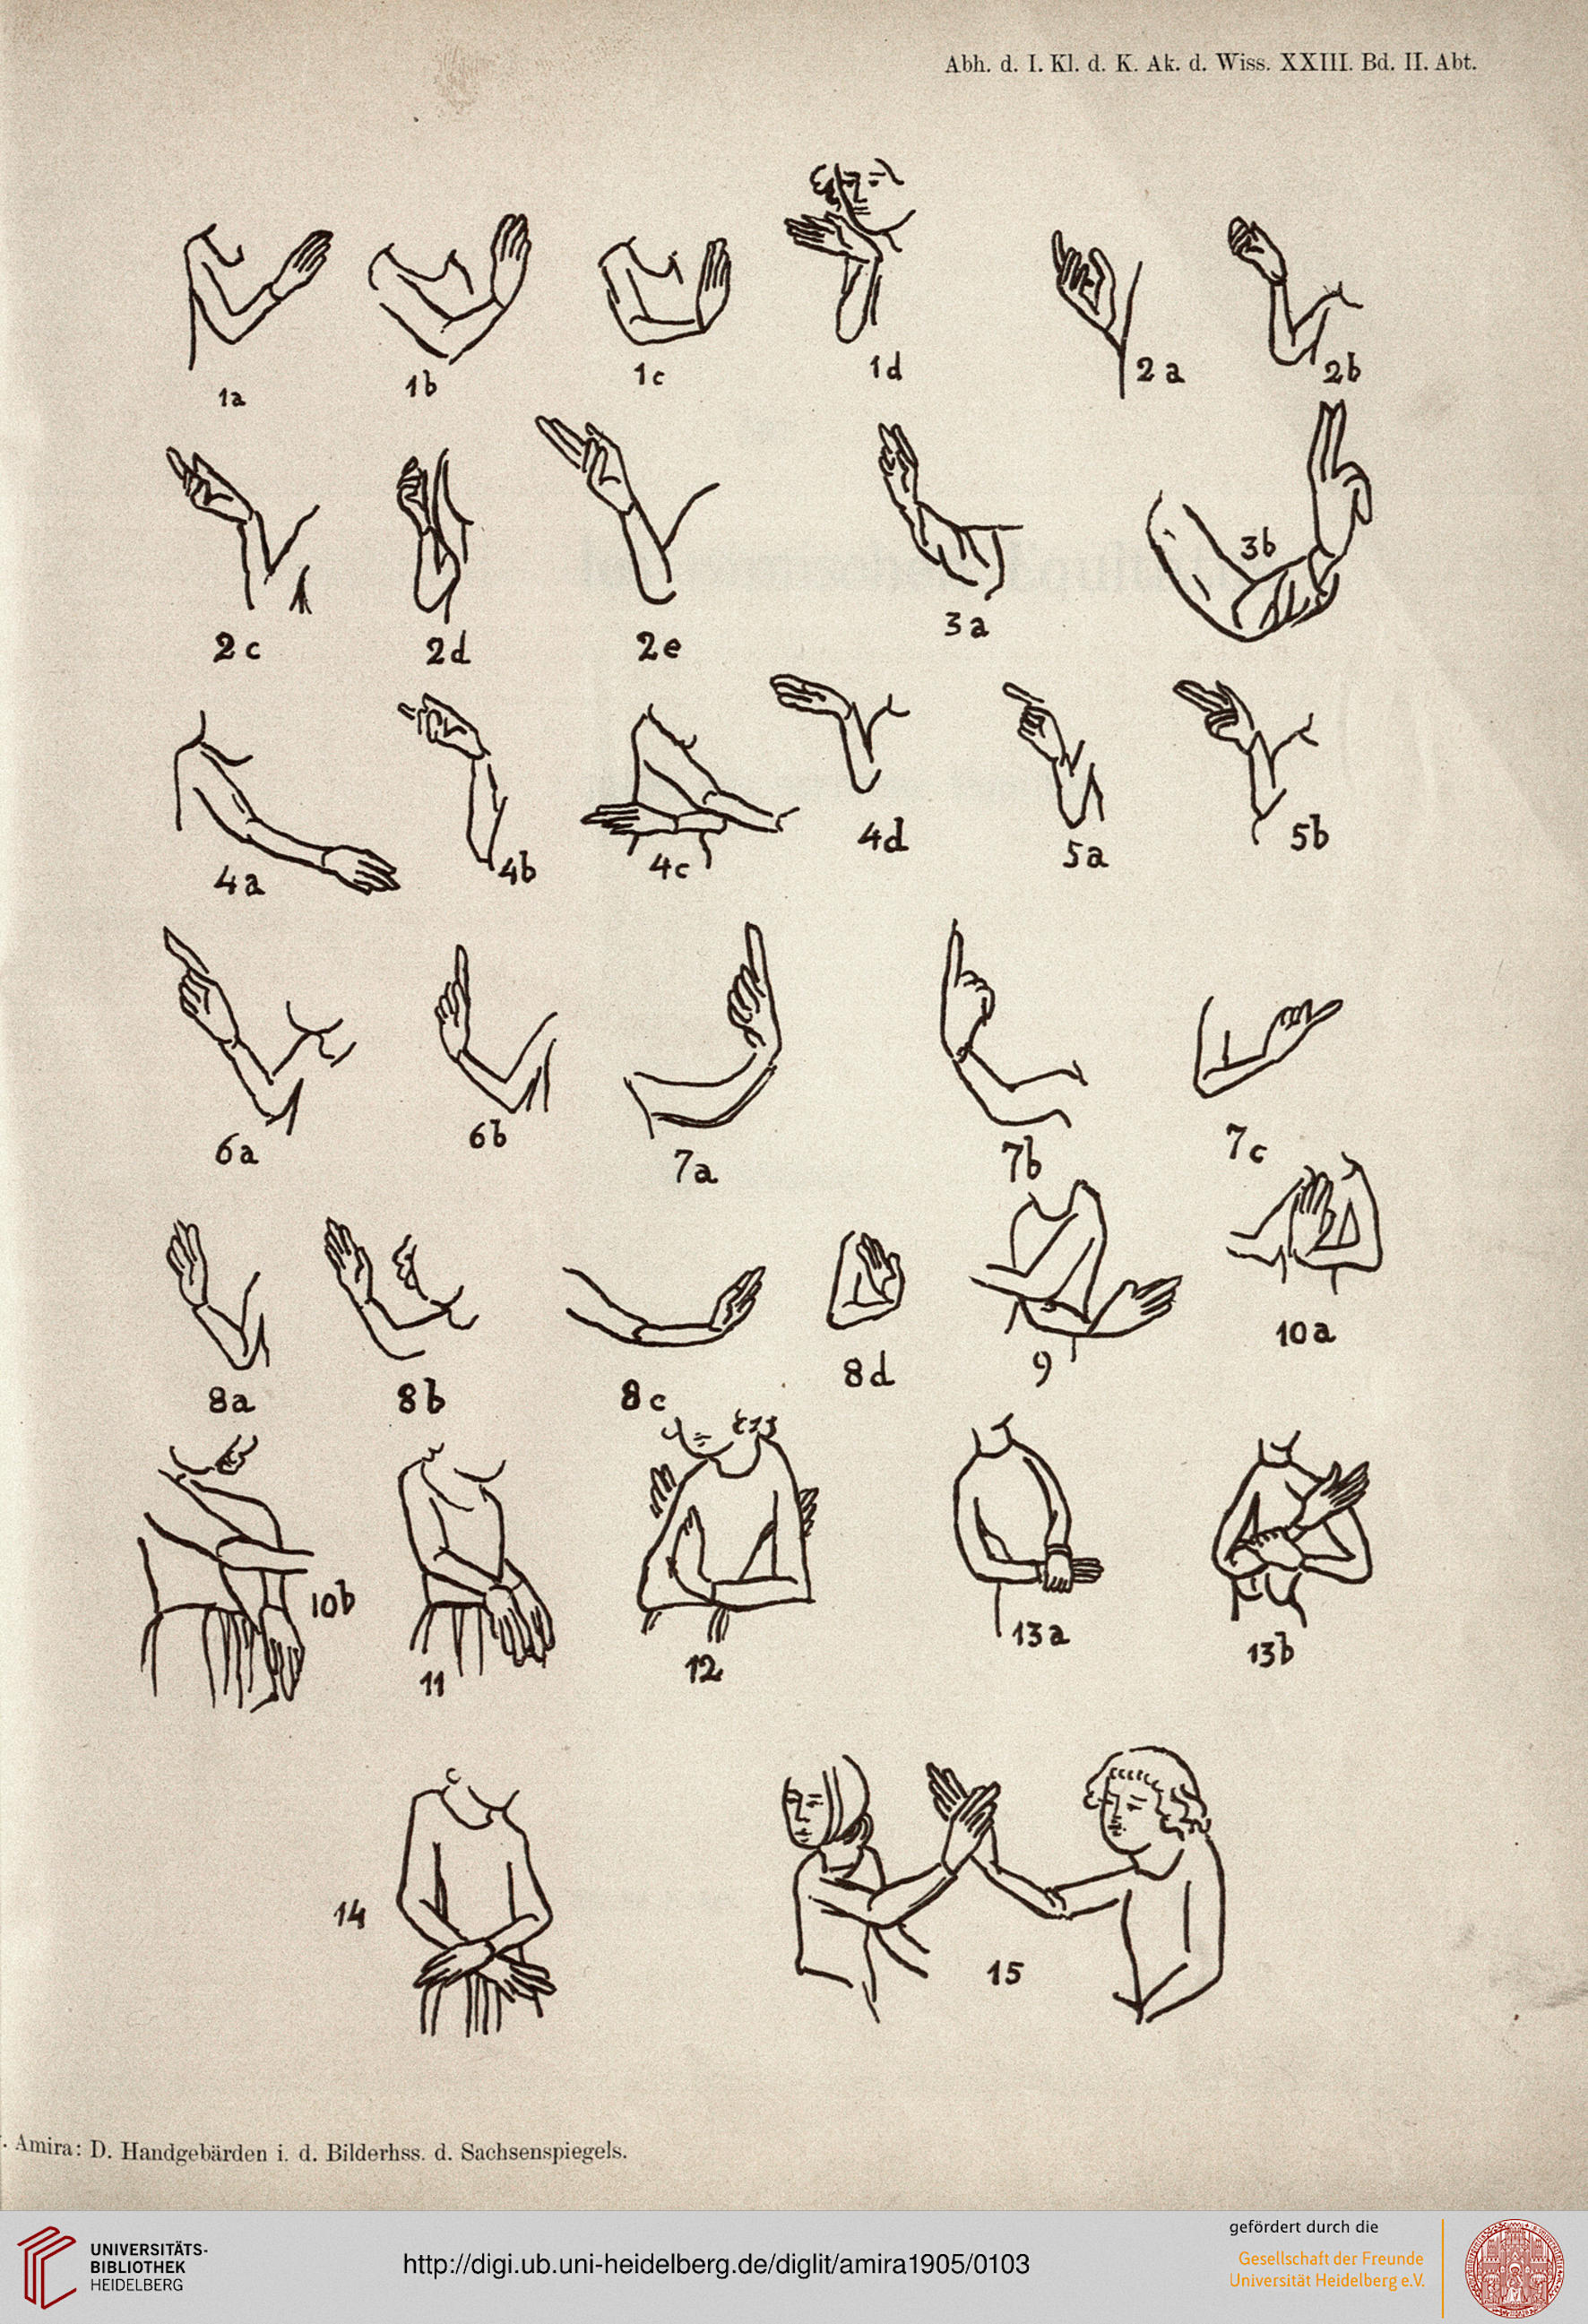 Abh. d. I. Kl. d. K. Ak. d. Wiss. XXIII. Bd. II. Abt.
1a
1b
1c
1d
2a
2b
2c
2d
2e
3a
3b
4a
4b
4c
4d
5a
5b
6a
6b
7a
7b
7c
8a
8b
8c
8d
9
10a
10b
11
12
13a
13b
14
15
Amira: D. Handgebärden i. d. Bilderhss. d. Sachsenspiegels.
UNIVERSITÄTS-
BIBLIOTHEK
HEIDELBERG
http://digi.ub.uni-heidelberg.de/diglit/amira1905/0103
gefördert durch die
Gesellschaft der Freunde
Universität Heidelberg e.V.